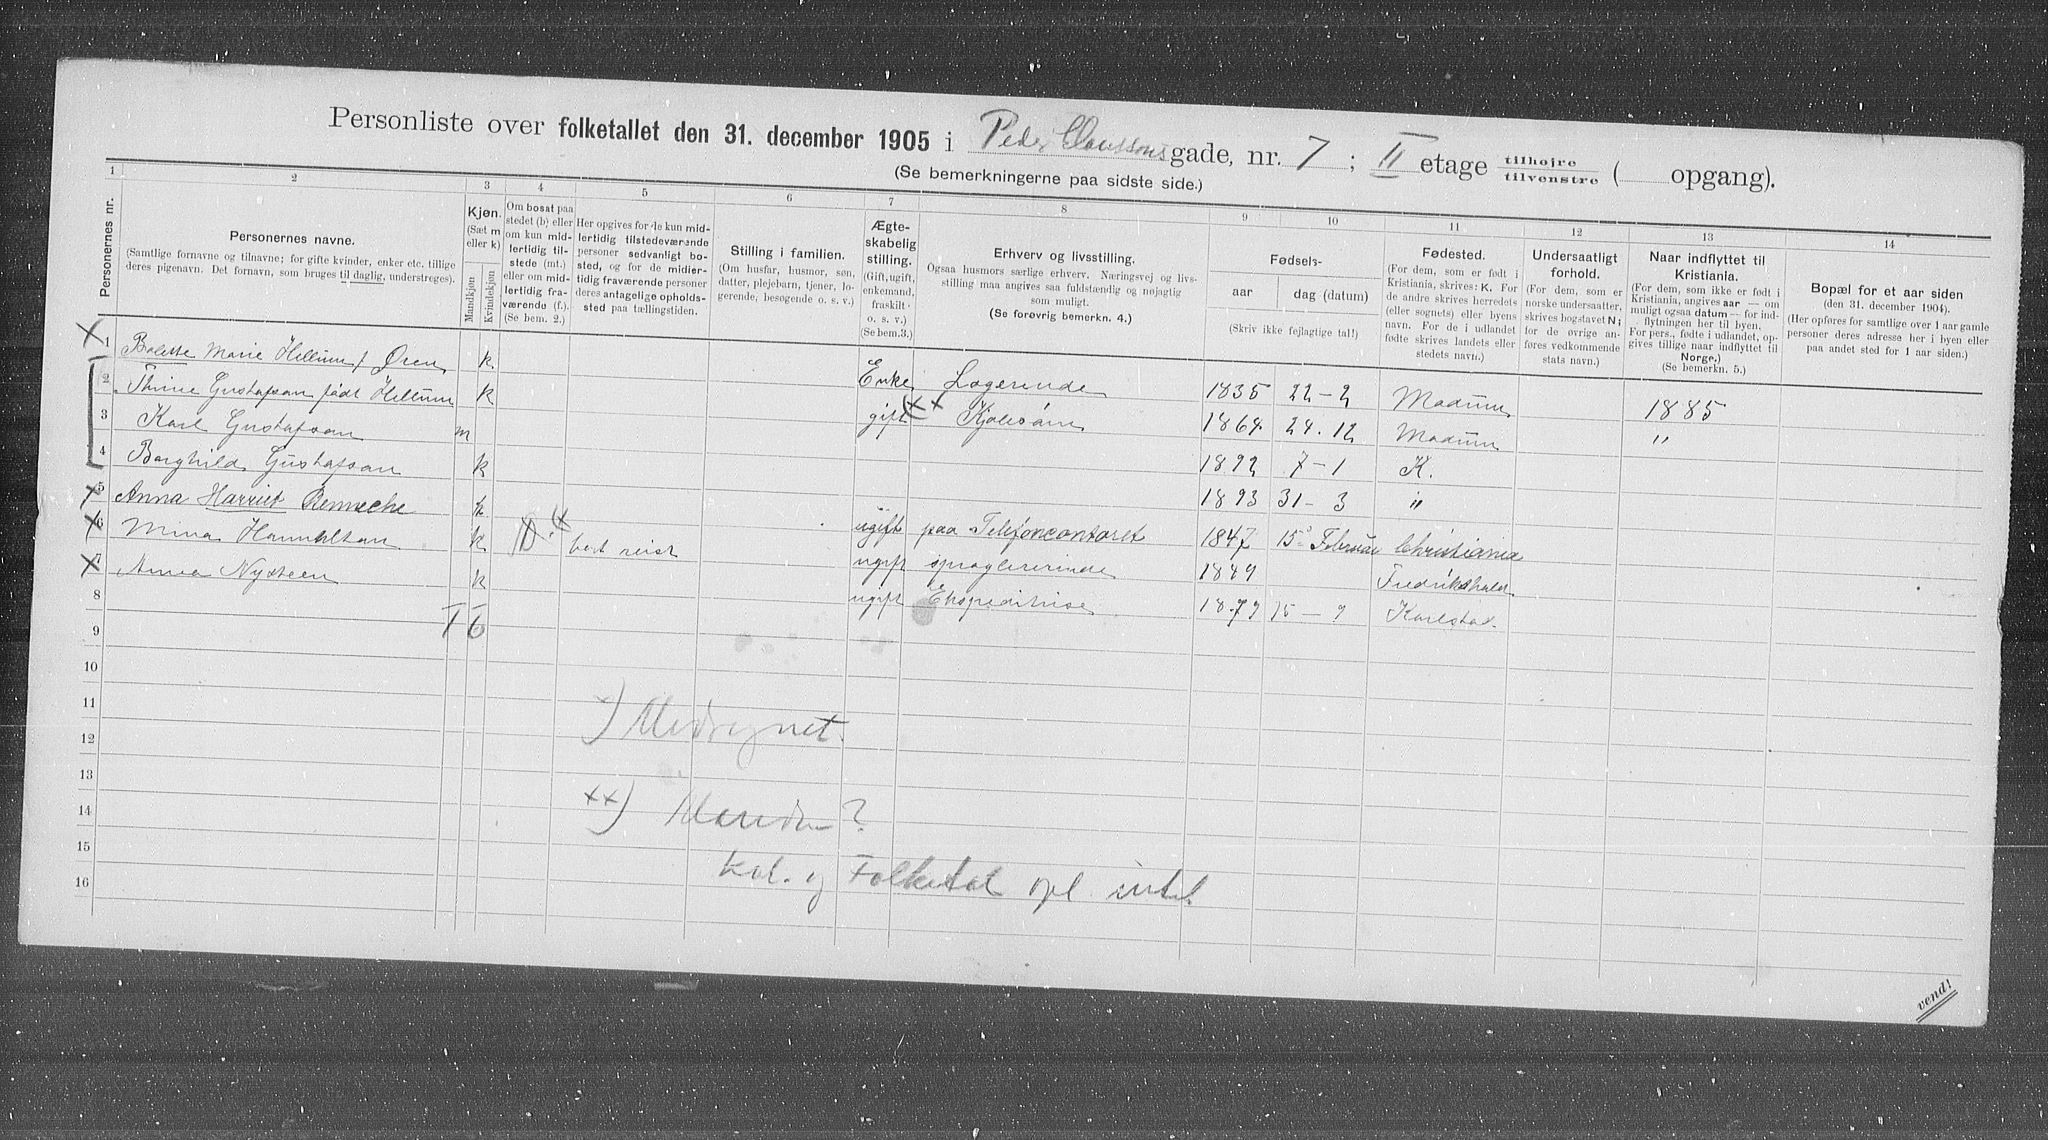 Personliste over folketallet den 31. december 1905 i Peder Claussøns gade, nr. 7 ; II etage tilhøjre tilvenstre ( opgang).
(Se bemerkningerne paa sidste side.)
1 2 3 4 5 6 7 8 9 10 11 12 13 14
Personernes nr.
Personernes navne.
(Samtlige fornavne og tilnavne; for gifte kvinder, enker etc. tillige
deres pigenavn. Det fornavn, som bruges til daglig, understreges).
Kjøn.
(Sæt m
eller k)
Mandkjøn
Kvindekjøn
Om bosat paa
stedet (b) eller
om kun mid-
lertidig til-
stede (mt.)
eller om mid-
lertidig fra-
værende (f.).
(Se bem. 2.)
Her opgives for de kun mid-
lertidig tilstedeværende
personer sedvanligt bo-
sted, og for de midler-
tidig fraværende personer
deres antagelige opholds-
sted paa tællingstiden.
Stilling i familien.
(Om husfar, husmor, søn,
datter, plejebarn, tjener, lo-
gerende, besøgende o. s. v.)
Ægte-
skabelig
stilling.
(Gift, ugift,
enkemand,
fraskilt
o. s. v.)
(Se bem.3.)
Erhverv og livsstilling.
Ogsaa husmors særlige erhverv. Næringsvej og livs-
stilling maa angives saa fuldstændig og nøjagtig
som muligt.
(Se forøvrig bemerkn. 4.)
Fødsels-
aar dag (datum)
(Skriv ikke fejlagtige tal!)
Fødested.
(For dem, som er født i
Kristiania, skrives: K. For
de andre skrives herredets
(eller sognets) eller byens
navn. For de i udlandet
fødte skrives landets eller
stedets navn.)
Undersaatligt
forhold.
(For dem, som er
norske undersaatter,
skrives bogstavet N;
for de øvrige an-
føres vedkommende
stats navn.)
Naar indflyttet til
Kristiania.
(For dem, som ikke er født i
Kristiania, angives aar — om
muligt ogsaa datum — for ind-
flytningen her til byen.
For pers., fødte i udlandet, op-
gives tillige naar indflyttet til
Norge.)
(Se bemerkn. 5.)
Bopæl for et aar siden
(den 31. december 1904).
(Her opføres for samtlige over 1 aar gamle
personer deres adresse her i byen eller
paa andet sted for 1 aar siden.)
1 Bolette Marie Hellum f Øren k Enke Logerende 1835 22-2 Modum 1885
2 Thrine Gustafsan født Hellum k gift ×× Kjolesøm 1864 24.12 Modum "
3 Karl Gustafsan m 1892 7-1 K.
4 Borghild Gustafsan k 1893 31-3 "
5 Anna Harriet Rennecke k ugift paa Telefoncontoret 1847 15 Februar Christiania
6 Mina k bort reist ugift sproglererinde 1849 Fredrikshald
7 Anna Nysteen k ugift Ekspeditrise 1879 15-9 Karlstad.
8
9 1 6
10
11 ×)
12
13
14 ××) Manden?
15
16 Kat. og Folketal opl. intet.
vend!